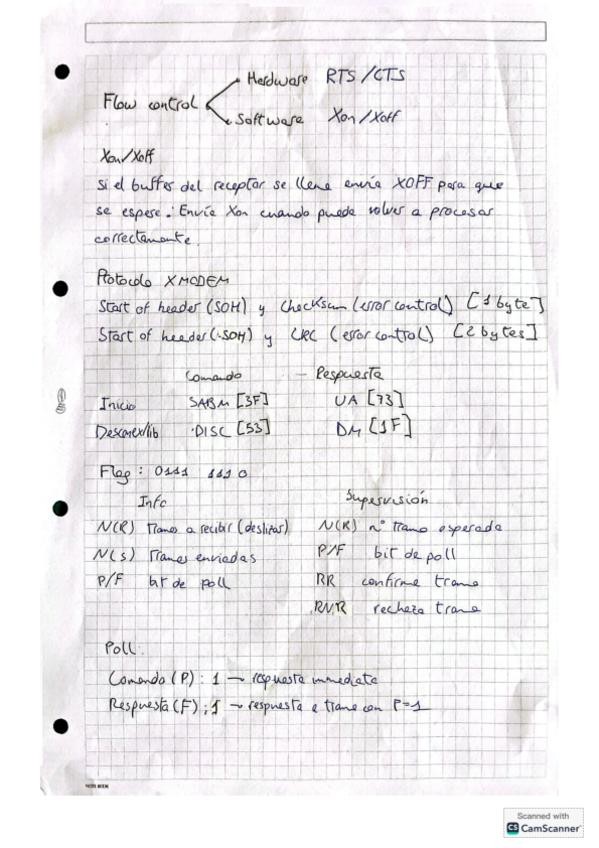 Flow control
Hardware RTS/CTS
Software Xon/Xoff
Xon/Xoff
Si el buffer del receptor se llena envía XOFF para que
se espere. Envía Xon cuando puede volver a procesar
correctamente.
Protocolo XMODEM
Start of header (SOH) y Checksum (error control) [1 byte]
Start of header (SOH) y CRC (error control) [2 bytes]
Comando — Respuesta
Inicio SABM [3F] UA [73]
Desconex/lib DISC [53] DM [1F]
Flag: 0111 1110
Info Supervisión
N(R) trama a recibir (deslizar) N(R) nº trama esperada
N(s) tramas enviadas P/F bit de poll
P/F bit de poll RR confirma trama
RNR rechaza trama
Poll.
Comando (P): 1 → respuesta inmediata
Respuesta (F): 1 → respuesta a trama con P=1
Scanned with
CS CamScanner